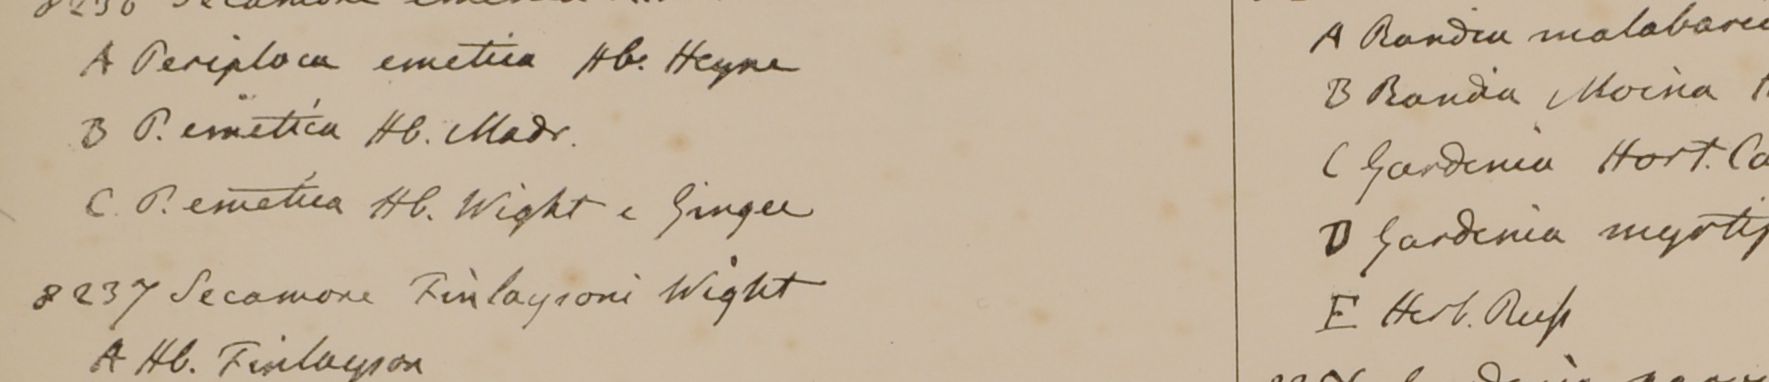 8236 Secamone emetica
A Periploca emetica Hb. Heyne
B P. emetica Hb. Madr.
C. P. emetica Hb. Wight e Gingee
8237 Secamone Finlaysoni Wight
A Hb. Finlayson
A Randia malabaric
B Randia Moina
C Gardenia Hort. Ca
D Gardenia myrtif
E Herb. Russ